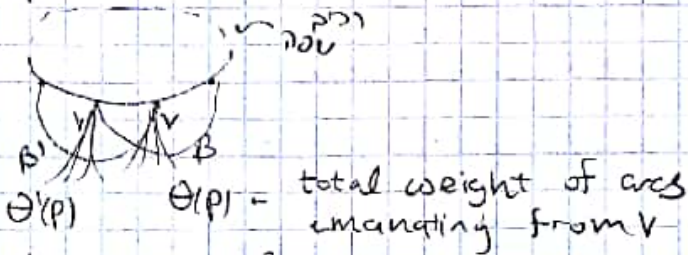 רכיב
שפה
V V
B' B
θ'(P) θ(P) - total weight of arcs
emanating from V